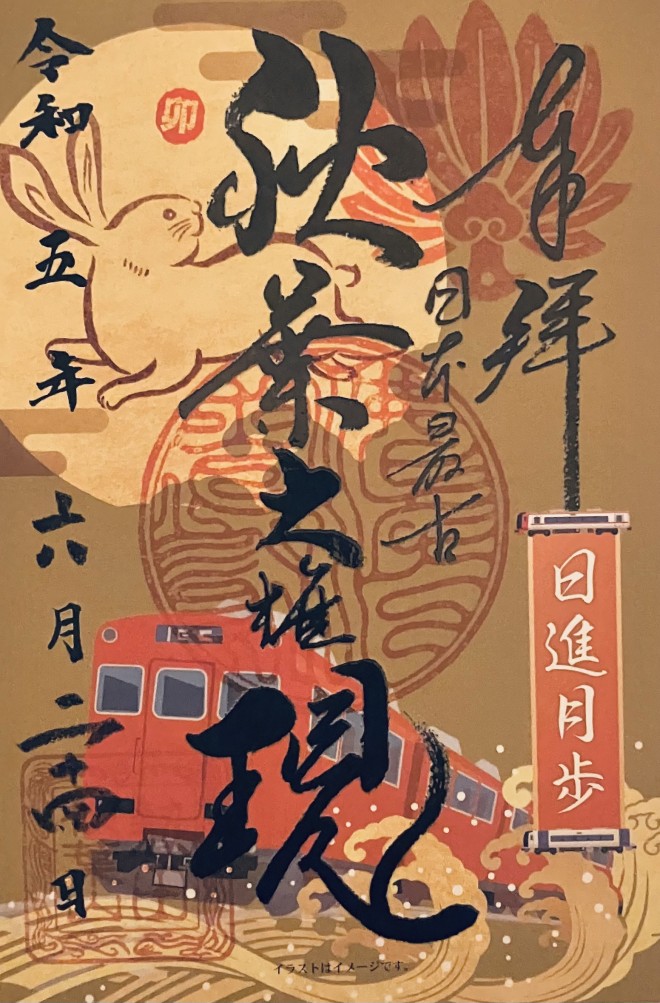 奉拝
日本最古
秋葉大権現
令和五年六月二十四日
卯
日進月歩
イラストはイメージです。